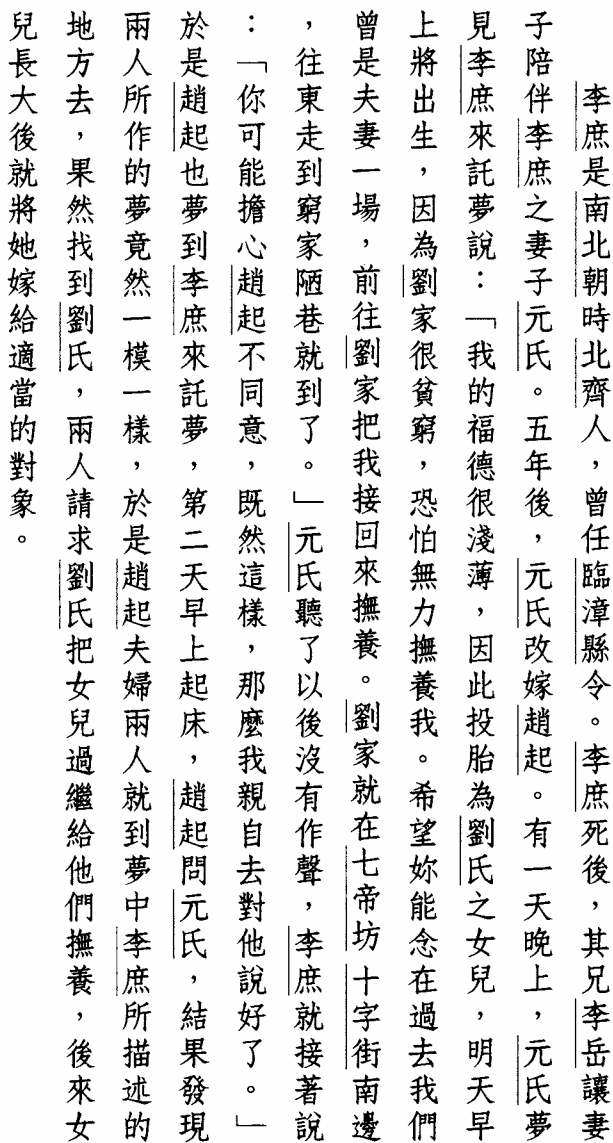 李庶是南北朝時北齊人，曾任臨漳縣令。李庶死後，其兄李岳讓妻
子陪伴李庶之妻子元氏。五年後，元氏改嫁趙起。有一天晚上，元氏夢
見李庶來託夢說：「我的福德很淺薄，因此投胎為劉氏之女兒，明天早
上將出生，因為劉家很貧窮，恐怕無力撫養我。希望妳能念在過去我們
曾是夫妻一場，前往劉家把我接回來撫養。劉家就在七帝坊十字街南邊
，往東走到窮家陋巷就到了。」元氏聽了以後沒有作聲，李庶就接著說
：「你可能擔心趙起不同意，既然這樣，那麼我親自去對他說好了。」
於是趙起也夢到李庶來託夢，第二天早上起床，趙起問元氏，結果發現
兩人所作的夢竟然一模一樣，於是趙起夫婦兩人就到夢中李庶所描述的
地方去，果然找到劉氏，兩人請求劉氏把女兒過繼給他們撫養，後來女
兒長大後就將她嫁給適當的對象。